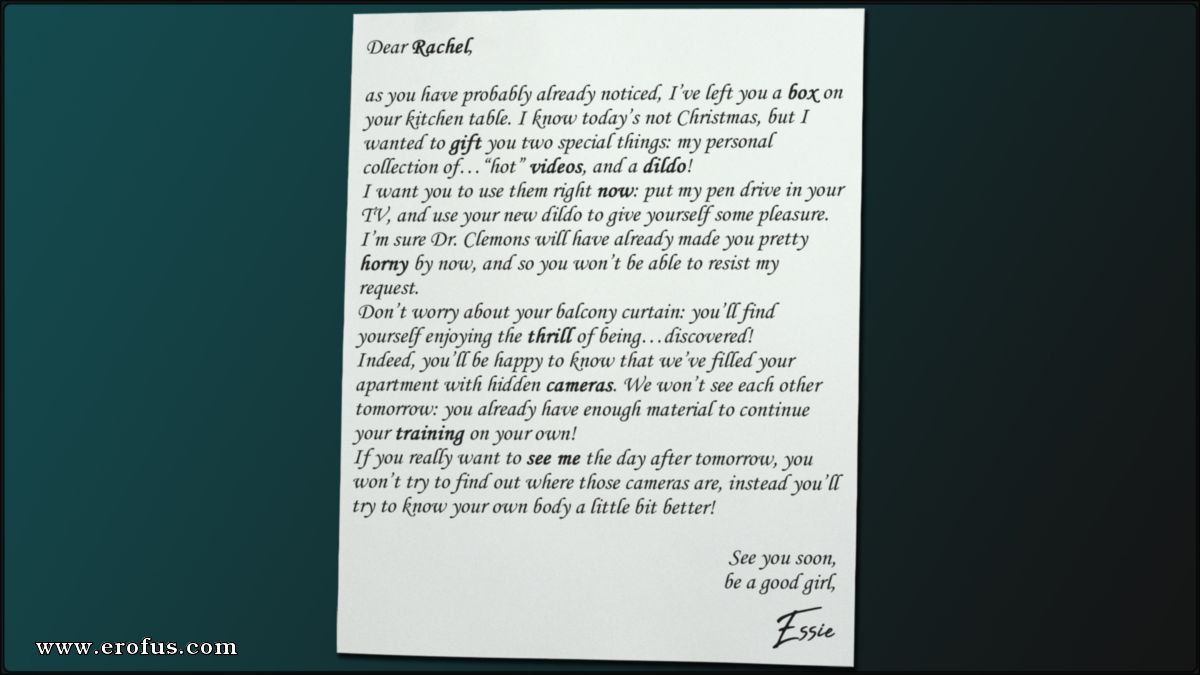 Dear Rachel,
as you have probably already noticed, I've left you a box on
your kitchen table. I know today's not Christmas, but I
wanted to gift you two special things: my personal
collection of…“hot” videos, and a dildo!
I want you to use them right now: put my pen drive in your
TV, and use your new dildo to give yourself some pleasure.
I'm sure Dr. Clemons will have already made you pretty
horny by now, and so you won't be able to resist my
request.
Don't worry about your balcony curtain: you'll find
yourself enjoying the thrill of being…discovered!
Indeed, you'll be happy to know that we've filled your
apartment with hidden cameras. We won't see each other
tomorrow: you already have enough material to continue
your training on your own!
If you really want to see me the day after tomorrow, you
won't try to find out where those cameras are, instead you'll
try to know your own body a little bit better!
See you soon,
be a good girl,
Essie
www.erofus.com